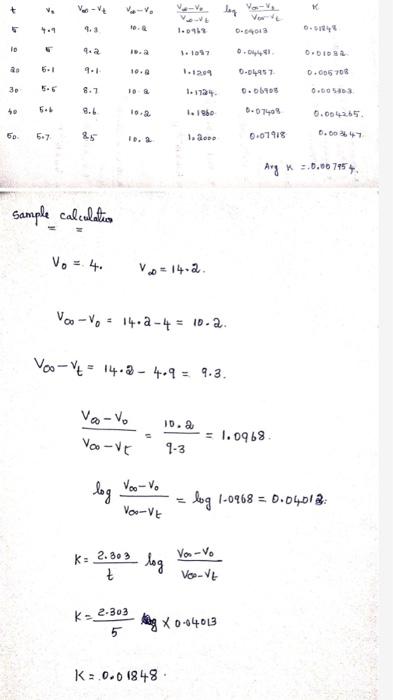 t V∞ V∞-Vt V∞-V₀ V∞-V₀/V∞-Vt log V∞-V₀/V∞-Vt K
5 4.9 9.3 10.2 1.0968 0.04013 0.01848
10 5 9.2 10.2 1.1087 0.04481 0.01032
20 5.1 9.1 10.2 1.1209 0.04957 0.005708
30 5.5 8.7 10.2 1.1724 0.06908 0.005303
40 5.6 8.6 10.2 1.1860 0.07409 0.004265
50 5.7 8.5 10.2 1.2000 0.07918 0.003647
Avg K = 0.007954.
Sample calculation
V₀ = 4. V∞ = 14.2.
V∞-V₀ = 14.2-4 = 10.2.
V∞-Vt = 14.2-4.9 = 9.3.
V∞-V₀/V∞-Vt = 10.2/9.3 = 1.0968.
log V∞-V₀/V∞-Vt = log 1.0968 = 0.04013.
K = 2.303/t log V∞-V₀/V∞-Vt
K = 2.303/5 × 0.04013
K = 0.01848.